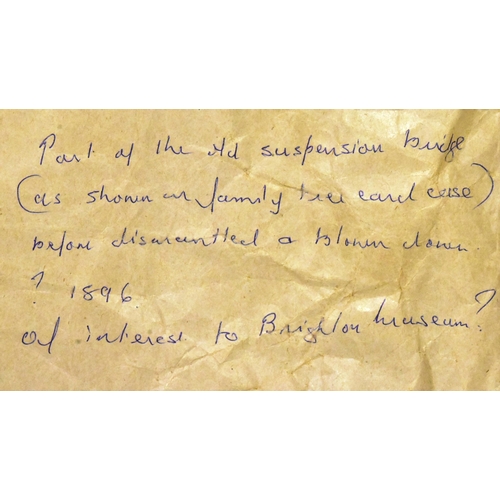 Part of the old suspension bridge
(as shown on family tree card case)
before dismantled & blown down.
? 1896.
Of interest to Brighton Museum?